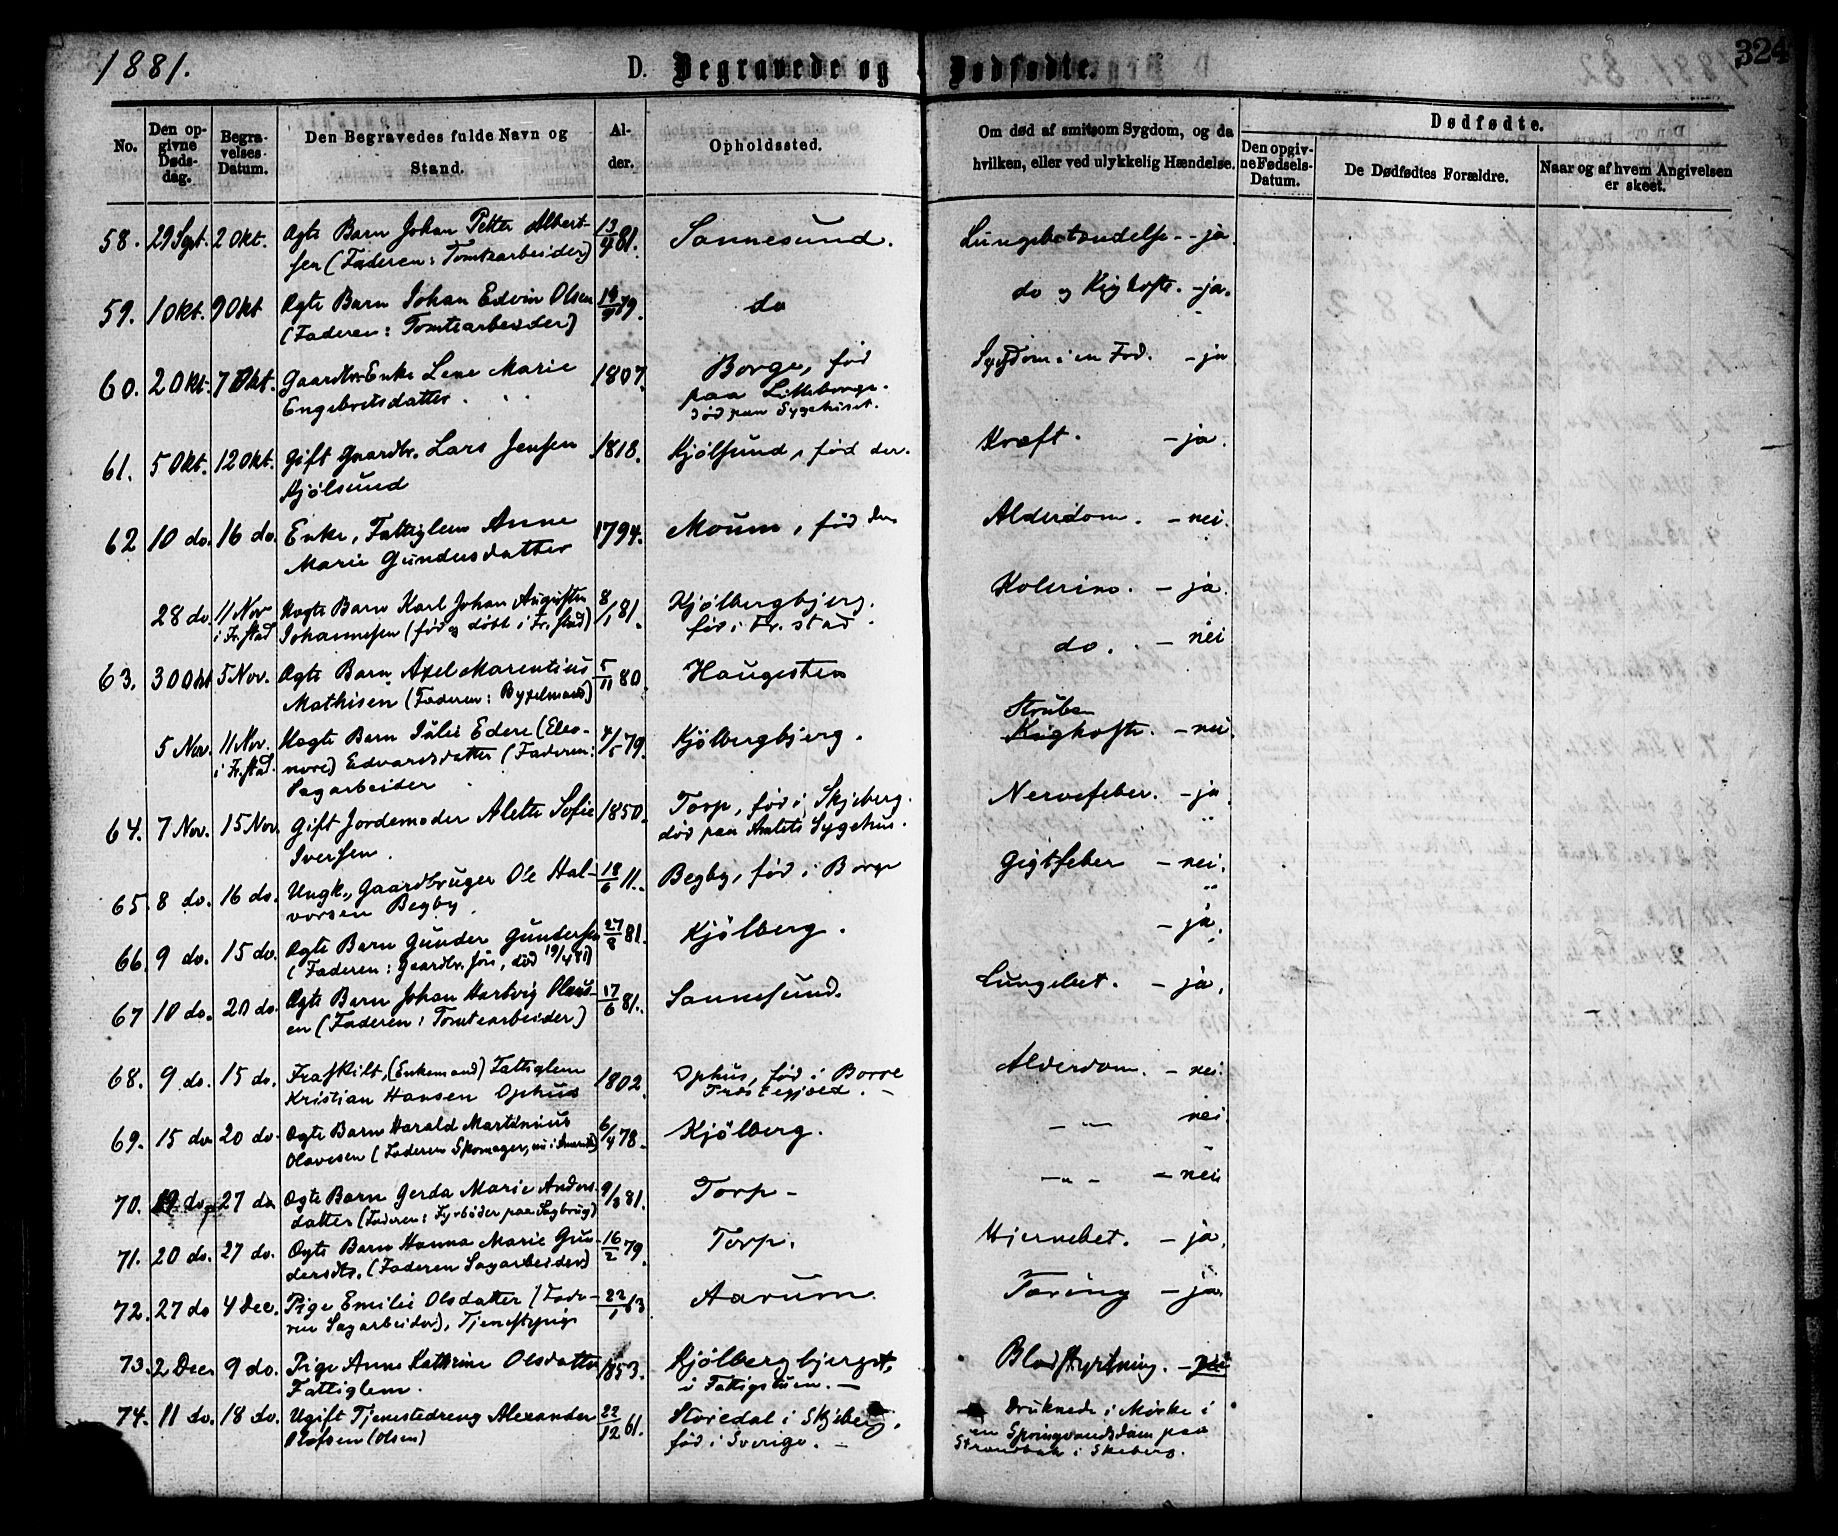 1881.
D. Begravede og Dødfødte.
324
No.
Den opgivne Dødsdag.
Begravelses-Datum.
Den Begravedes fulde Navn og Stand.
Alder.
Opholdssted.
Om død af smitsom Sygdom, og da hvilken, eller ved ulykkelig Hændelse.
Dødfødte.
Den opgivne Fødsels-Datum.
De Dødfødtes Forældre.
Naar og af hvem Angivelsen er skeet.
58. 29 Sept. 2 Okt. Ægte Barn Johan Petter Albert- 13/4 81. Sannesund. Lungebetændelse. - ja.
sen (Faderen: Tomtearbeider)
59. 1 Okt. 9 Okt Ægte Barn Johan Edvin Olsen 19/9 79. do do og Kighoste. - ja.
(Faderen: Tomtearbeider)
60. 2 Okt. 7 Okt. Gaardbr. Enke Lene Marie 1807. Borge, fød Sygdom i en Fod. - ja
Engebretsdatter. paa Lilleborge.
død paa Sygehuset.
61. 5 Okt. 12 Okt. Gift Gaardbr. Lars Jensen 1818. Kjølsund, fød der. Kræft. - ja.
Kjølsund
62 10 do. 16 do. Enke, Fattiglem Anne 1794. Moum, fød der Alderdom. - nei.
Marie Gundersdatter
28 do. 11 Nov. Uægte Barn Karl Johan Augustin 8/1 81. Kjølbergbjerg. Kolerine. - ja.
i Fr.stad Johannesen (fød og døbt i Fr.stad) fød i Fr.stad.
63. 30 Okt 5 Nov. Ægte Barn Axel Marentius 5/11 80. Haugesten do. - nei
Mathisen (Faderen: Byxelmand)
5 Nov. 11 Nov. Uægte Barn Julie Edere (Eleo- 4/5 79. Kjølbergbjerg. Strube
i Fr.stad. nore) Edvardsdatter (Faderen: Kighoste. - nei.
Sagarbeider
64. 7 Nov. 15 Nov. Gift Jordemoder Alette Sofie 1850. Torp, fød i Skjeberg. Nervefeber. - ja
Iversen. død paa Amtets Sygehus.
65. 8 do. 16 do. Ungk., Gaardbruger Ole Hal- 18/6 11. Begby, fød i Borge Gigtfeber - nei.
vorsen Begby.
66. 9 do. 15 do. Ægte Barn Gunder Gundersen 27/8 81. Kjølberg. - ja.
(Faderen: Gaardbr. Jøn, død 19/4 81)
67 10 do. 20 do. Ægte Barn Johan Hartvig Olaus- 17/6 81. Sannesund. Lungebet. - ja.
en (Faderen: Tomtearbeider)
68. 9 do. 15 do. Fraskilt, (Enkemand) Fattiglem 1802. Ophus, fød i Borre Alderdom. - nei.
Kristian Hansen Ophus Præstegjæld. -
69. 15 do 20 do. Ægte Barn Harald Martinius 6/4 78. Kjølberg. - " - nei.
Olavesen (Faderen Skomager,
70. 19 do 27 do Ægte Barn Gerda Marie Anders 9/3 81. Torp - - " - - nei
datter (Faderen: Fyrbøder paa Sagbrug)
71. 20 do. 27 do. Ægte Barn Hanna Marie Gun- 16/2 79. Torp. Hjernebet. - ja.
dersdtr. (Faderen Sagarbeider)
72. 27 do 4 Dec. Pige Emilie Olsdatter (Fade- 22/1 63 Aarum. Tæring - ja.
ren Sagarbeider), Tjenestepige
73. 2 Dec 9 do. Pige Anne Kathrine Olsdatter 1853. Kjølbergbjerget, Blodstyrtning. - nei
Fattiglem. i Fattigstuen. -
74. 11 do. 18 do. Ugift Tjenestedreng Alexander 22/12 61. Storedal i Skjeberg. Druknede i Mørke i
Olofsen (Olsen) fød i Sverige. - en Springvandsdam paa
Strandbak i Skeberg.